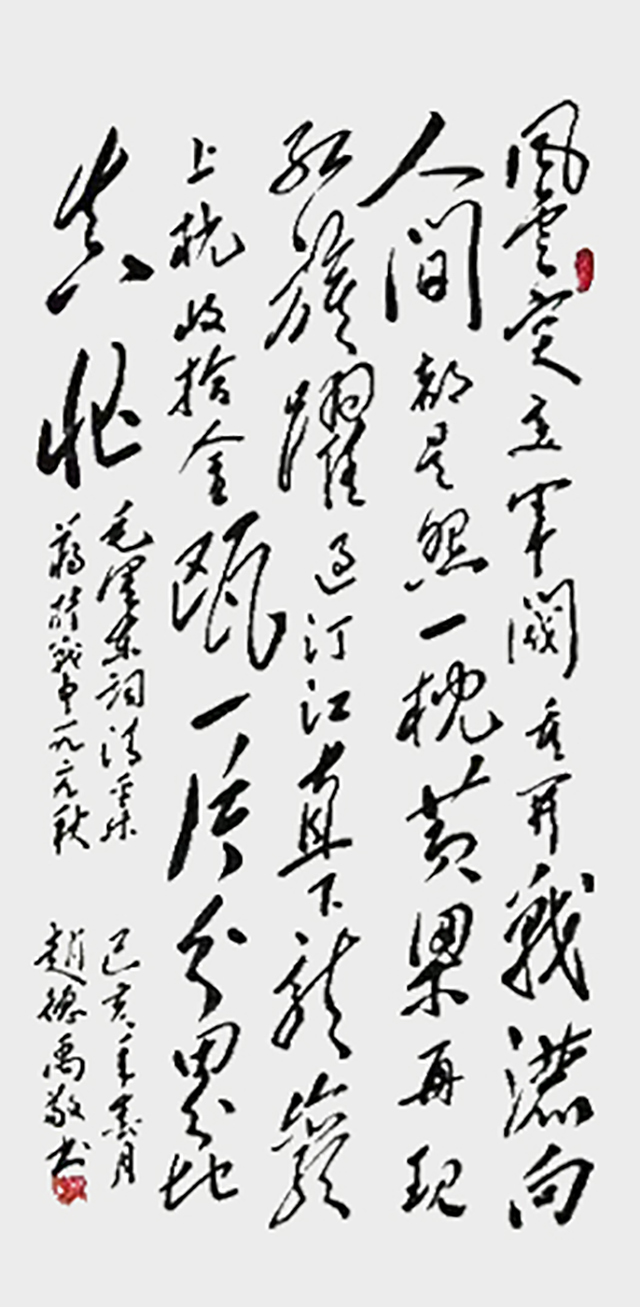 風雲突变軍阀重开戰灑向
人间都是怨一枕黄粱再现
红旗躍过汀江直下龙巖
上杭收拾金瓯一片分田分地
真忙
毛泽东词清平乐
蒋桂战争一九二九秋
己亥年月
趙德禹敬书